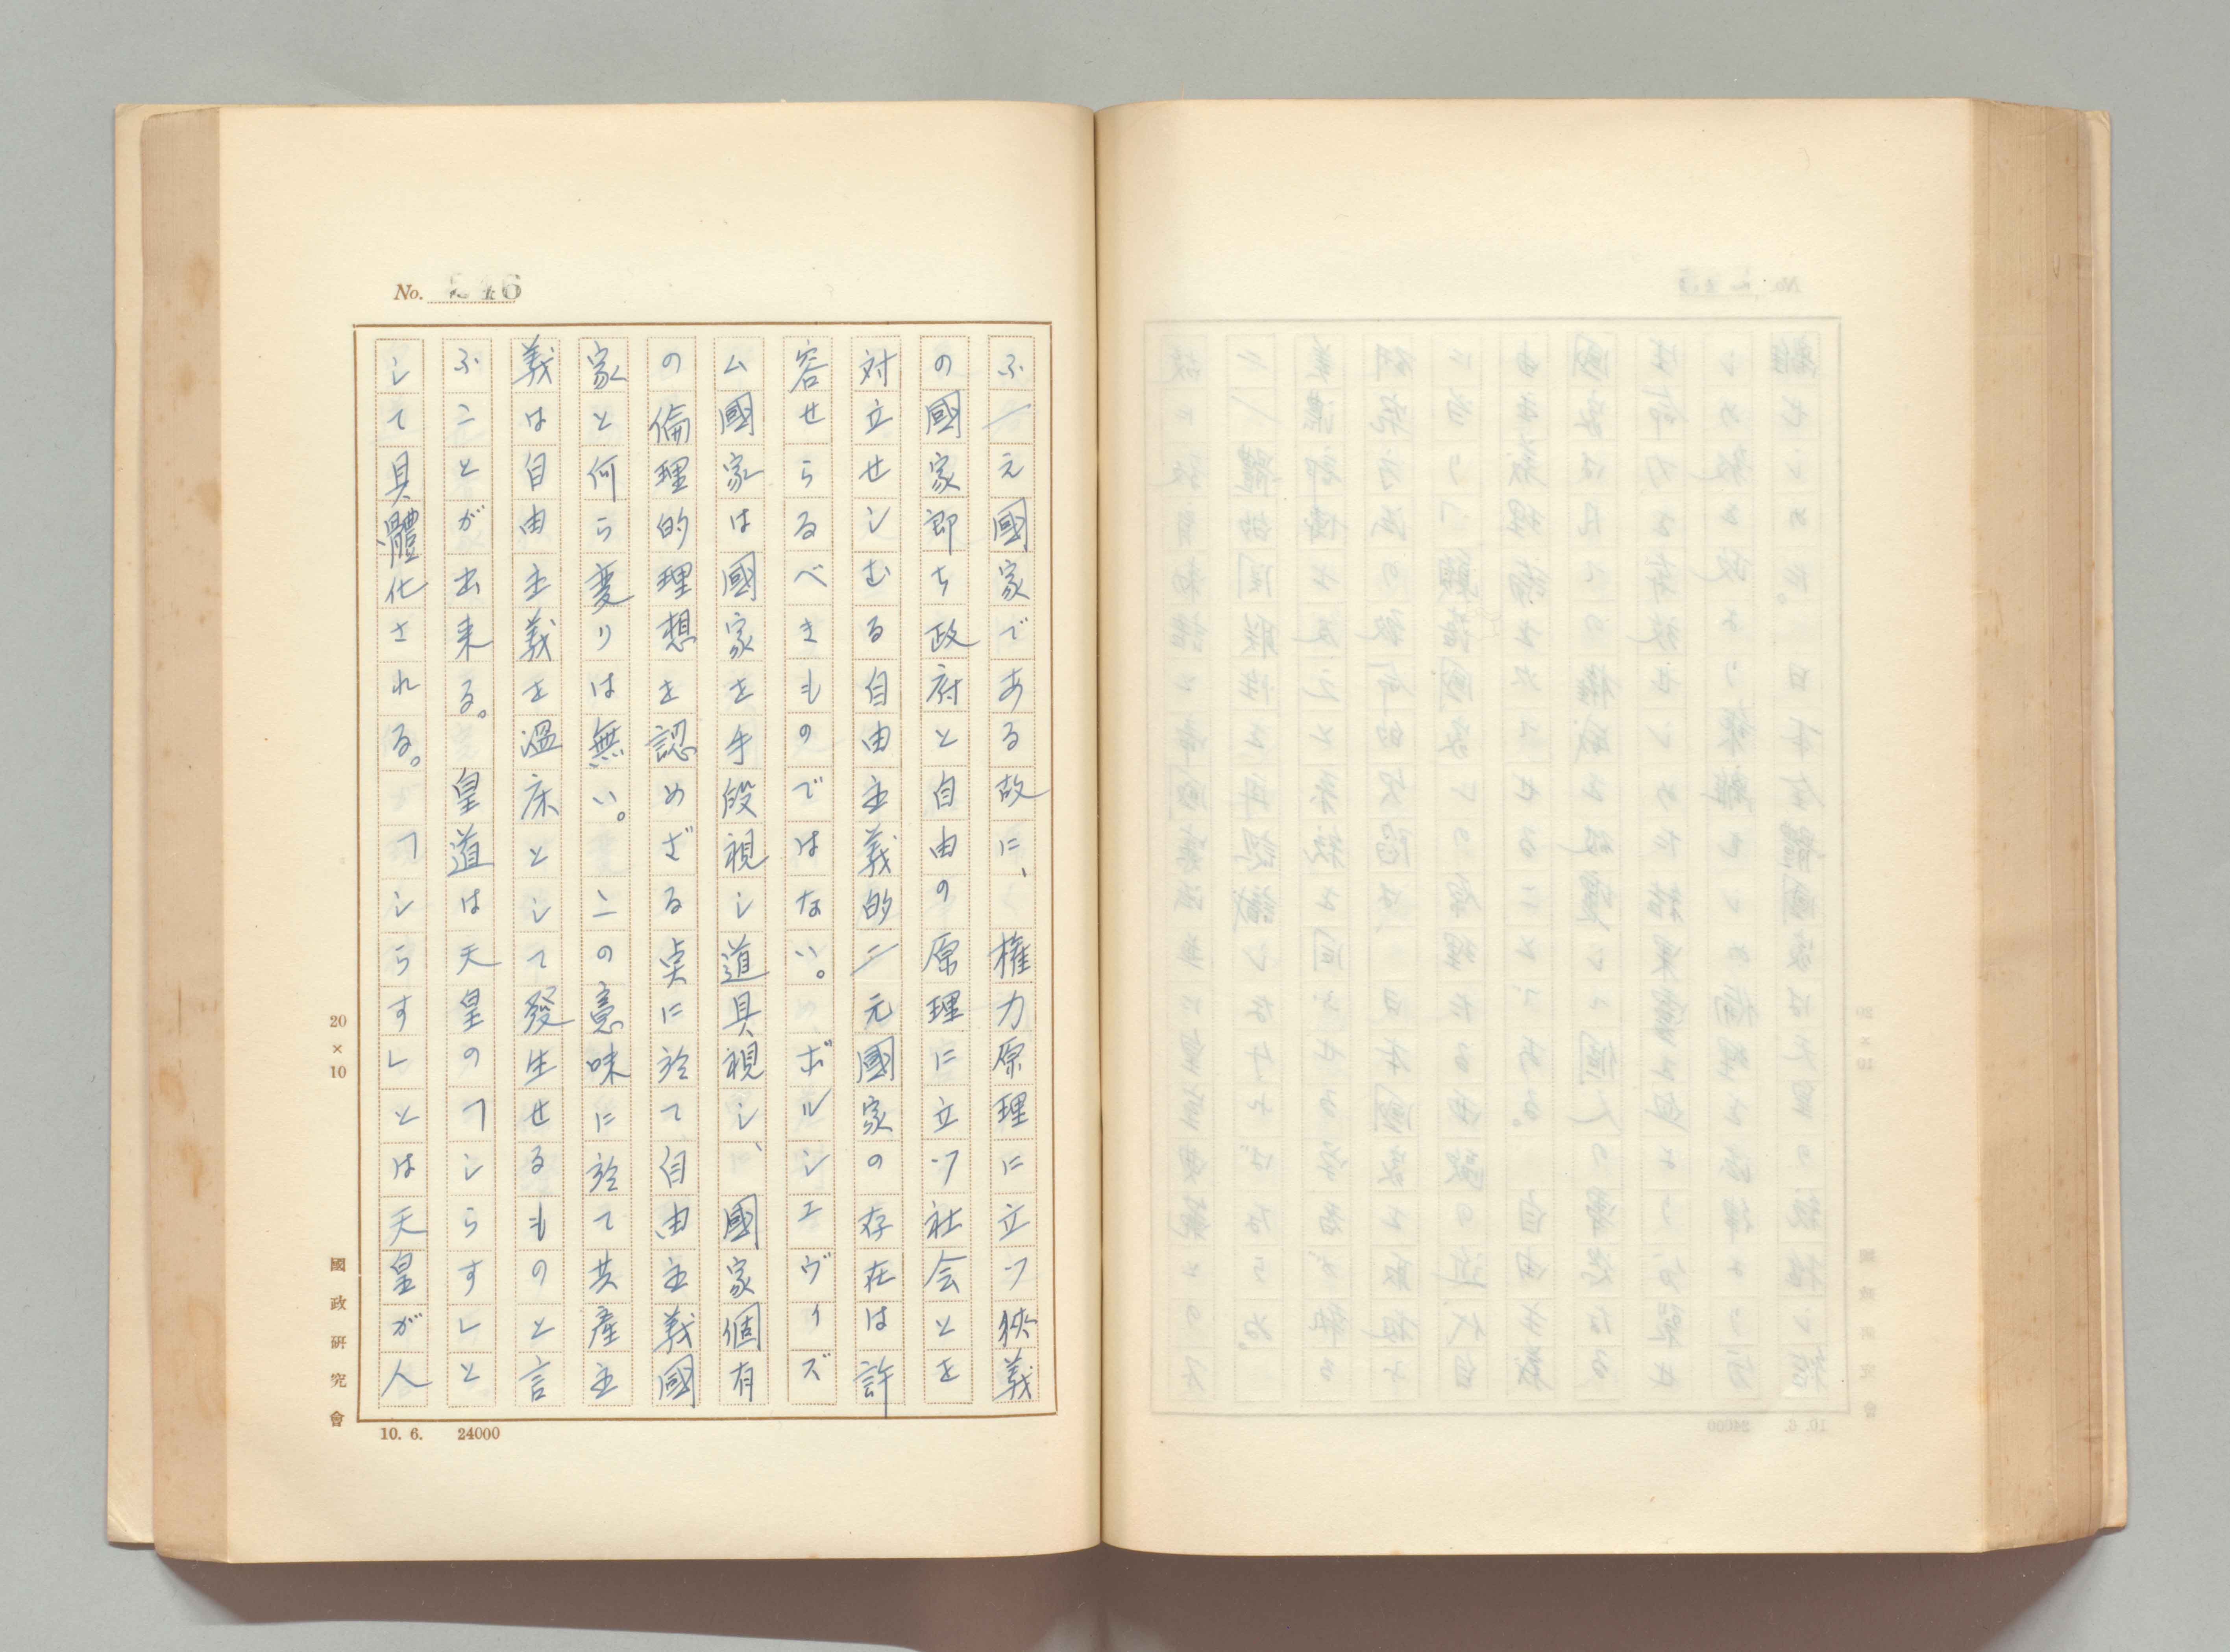 No. 246
ふ一元國家である故に、権力原理に立つ狹義
の國家即ち政府と自由の原理に立つ社会とを
対立せしむる自由主義的二元國家の存在は許
容せらるべきものではない。ボルシエヴィズ
ム國家は國家を手段視し道具視し、國家個有
の倫理的理想を認めざる点に於て自由主義國
家と何ら変りは無い。この意味に於て共産主
義は自由主義を温床として發生せるものと言
ふことが出来る。皇道は天皇の「しらす」と
して具體化される。「しらす」とは天皇が人
20×10
國政研究會
10. 6. 24000